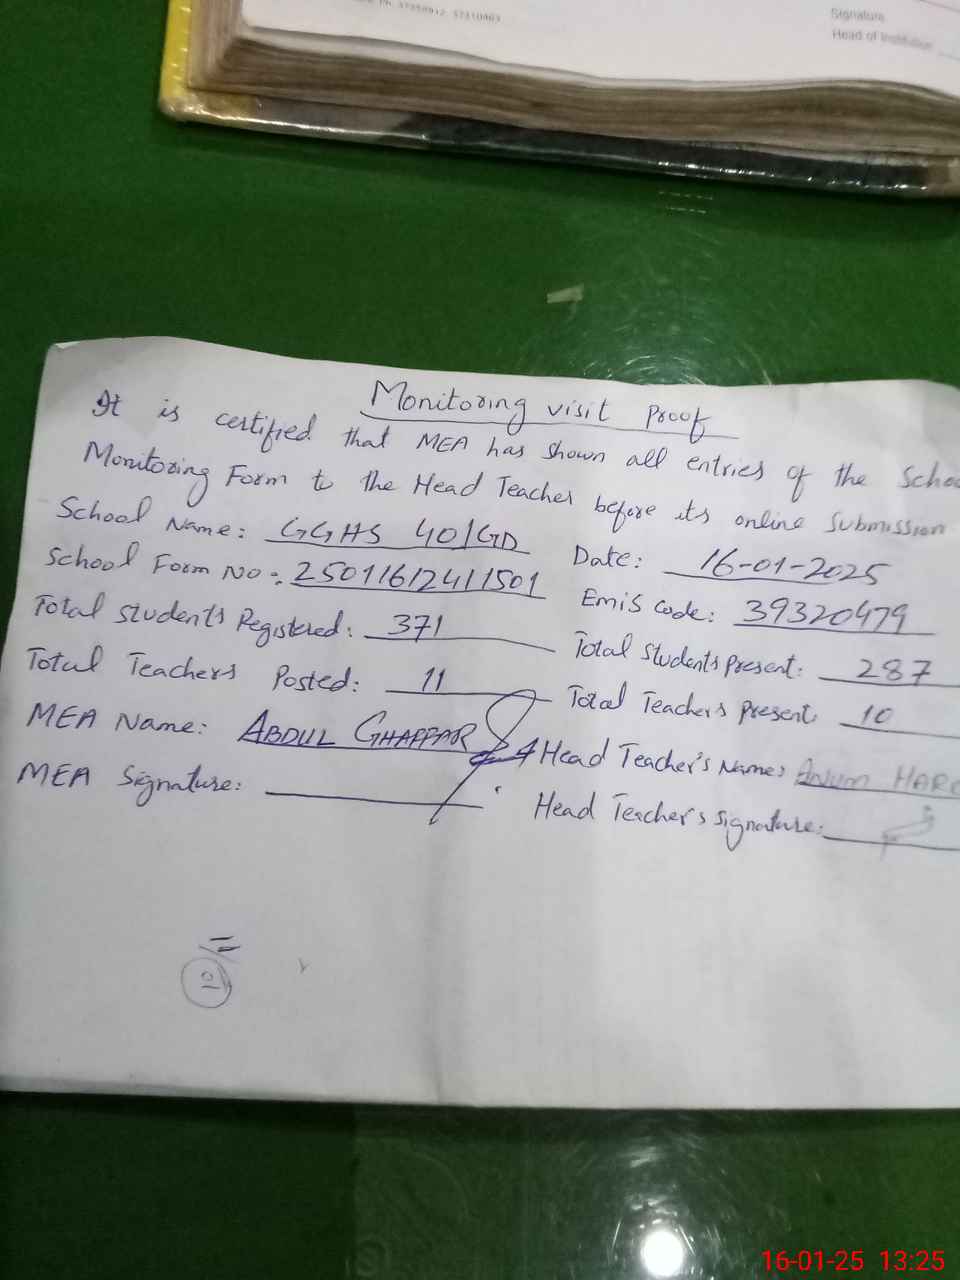 Signature
Head of Institution
Monitoring visit Proof
It is certified that MEA has shown all entries of the Schoo
Monitoring Form to the Head Teacher before its online Submission
School Name: GGHS 40/GD Date: 16-01-2025
School Form No: 25011612411501 Emis Code: 39320479
Total Students Registered: 371 Total Students Present: 287
Total Teachers Posted: 11 Total Teachers Present: 10
MEA Name: ABDUL GHAFFAR Head Teacher's Name: ANUM HARO
MEA Signature: Head Teacher's Signature:
16-01-25 13:25